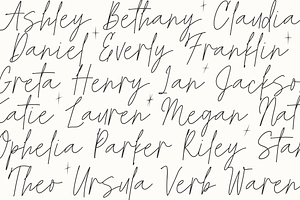 Ashley Bethany Claudia
Daniel Everly Franklin
Greta Henry Ian Jackso
Katie Lauren Megan Nat
Ophelia Parker Riley Star
Theo Ursula Verb Waren